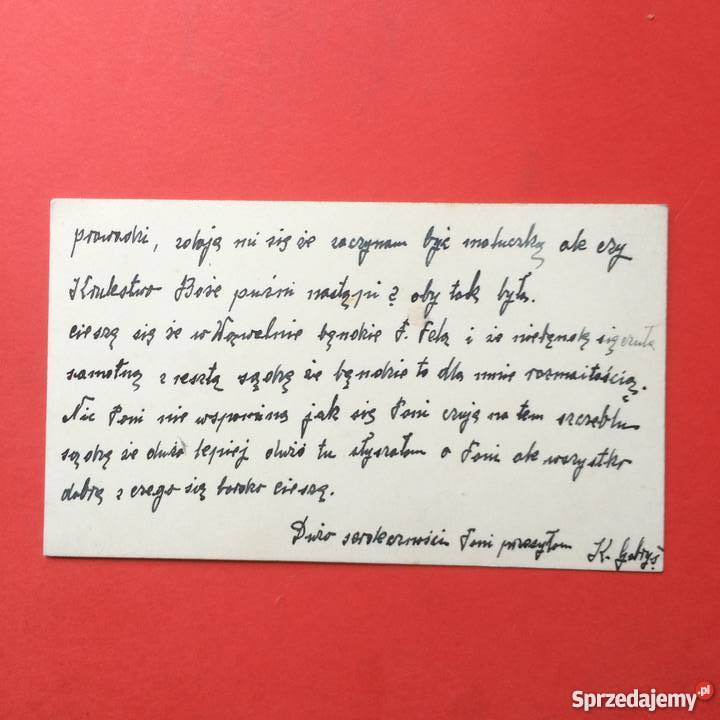 prowadzi, zdają mi się że zaczynam być maluczką ale czy
Królestwo Boże puźni nastąpi? oby tak była.
cieszę się że w będzie P. Fela i że nie będę się czuła
samotną z resztą sądzę że będzie to dla mnie rozmaitością.
Nic Pani nie wspomina jak się Pani czują na tem szczeblu
sądzę że dużo lepiej dużo tu słyszałam o Pani ale wszystko
dobrę z czego się bardzo cieszę.
Dużo serdeczności Pani przesyłam K. Gabryś
Sprzedajemy.pl